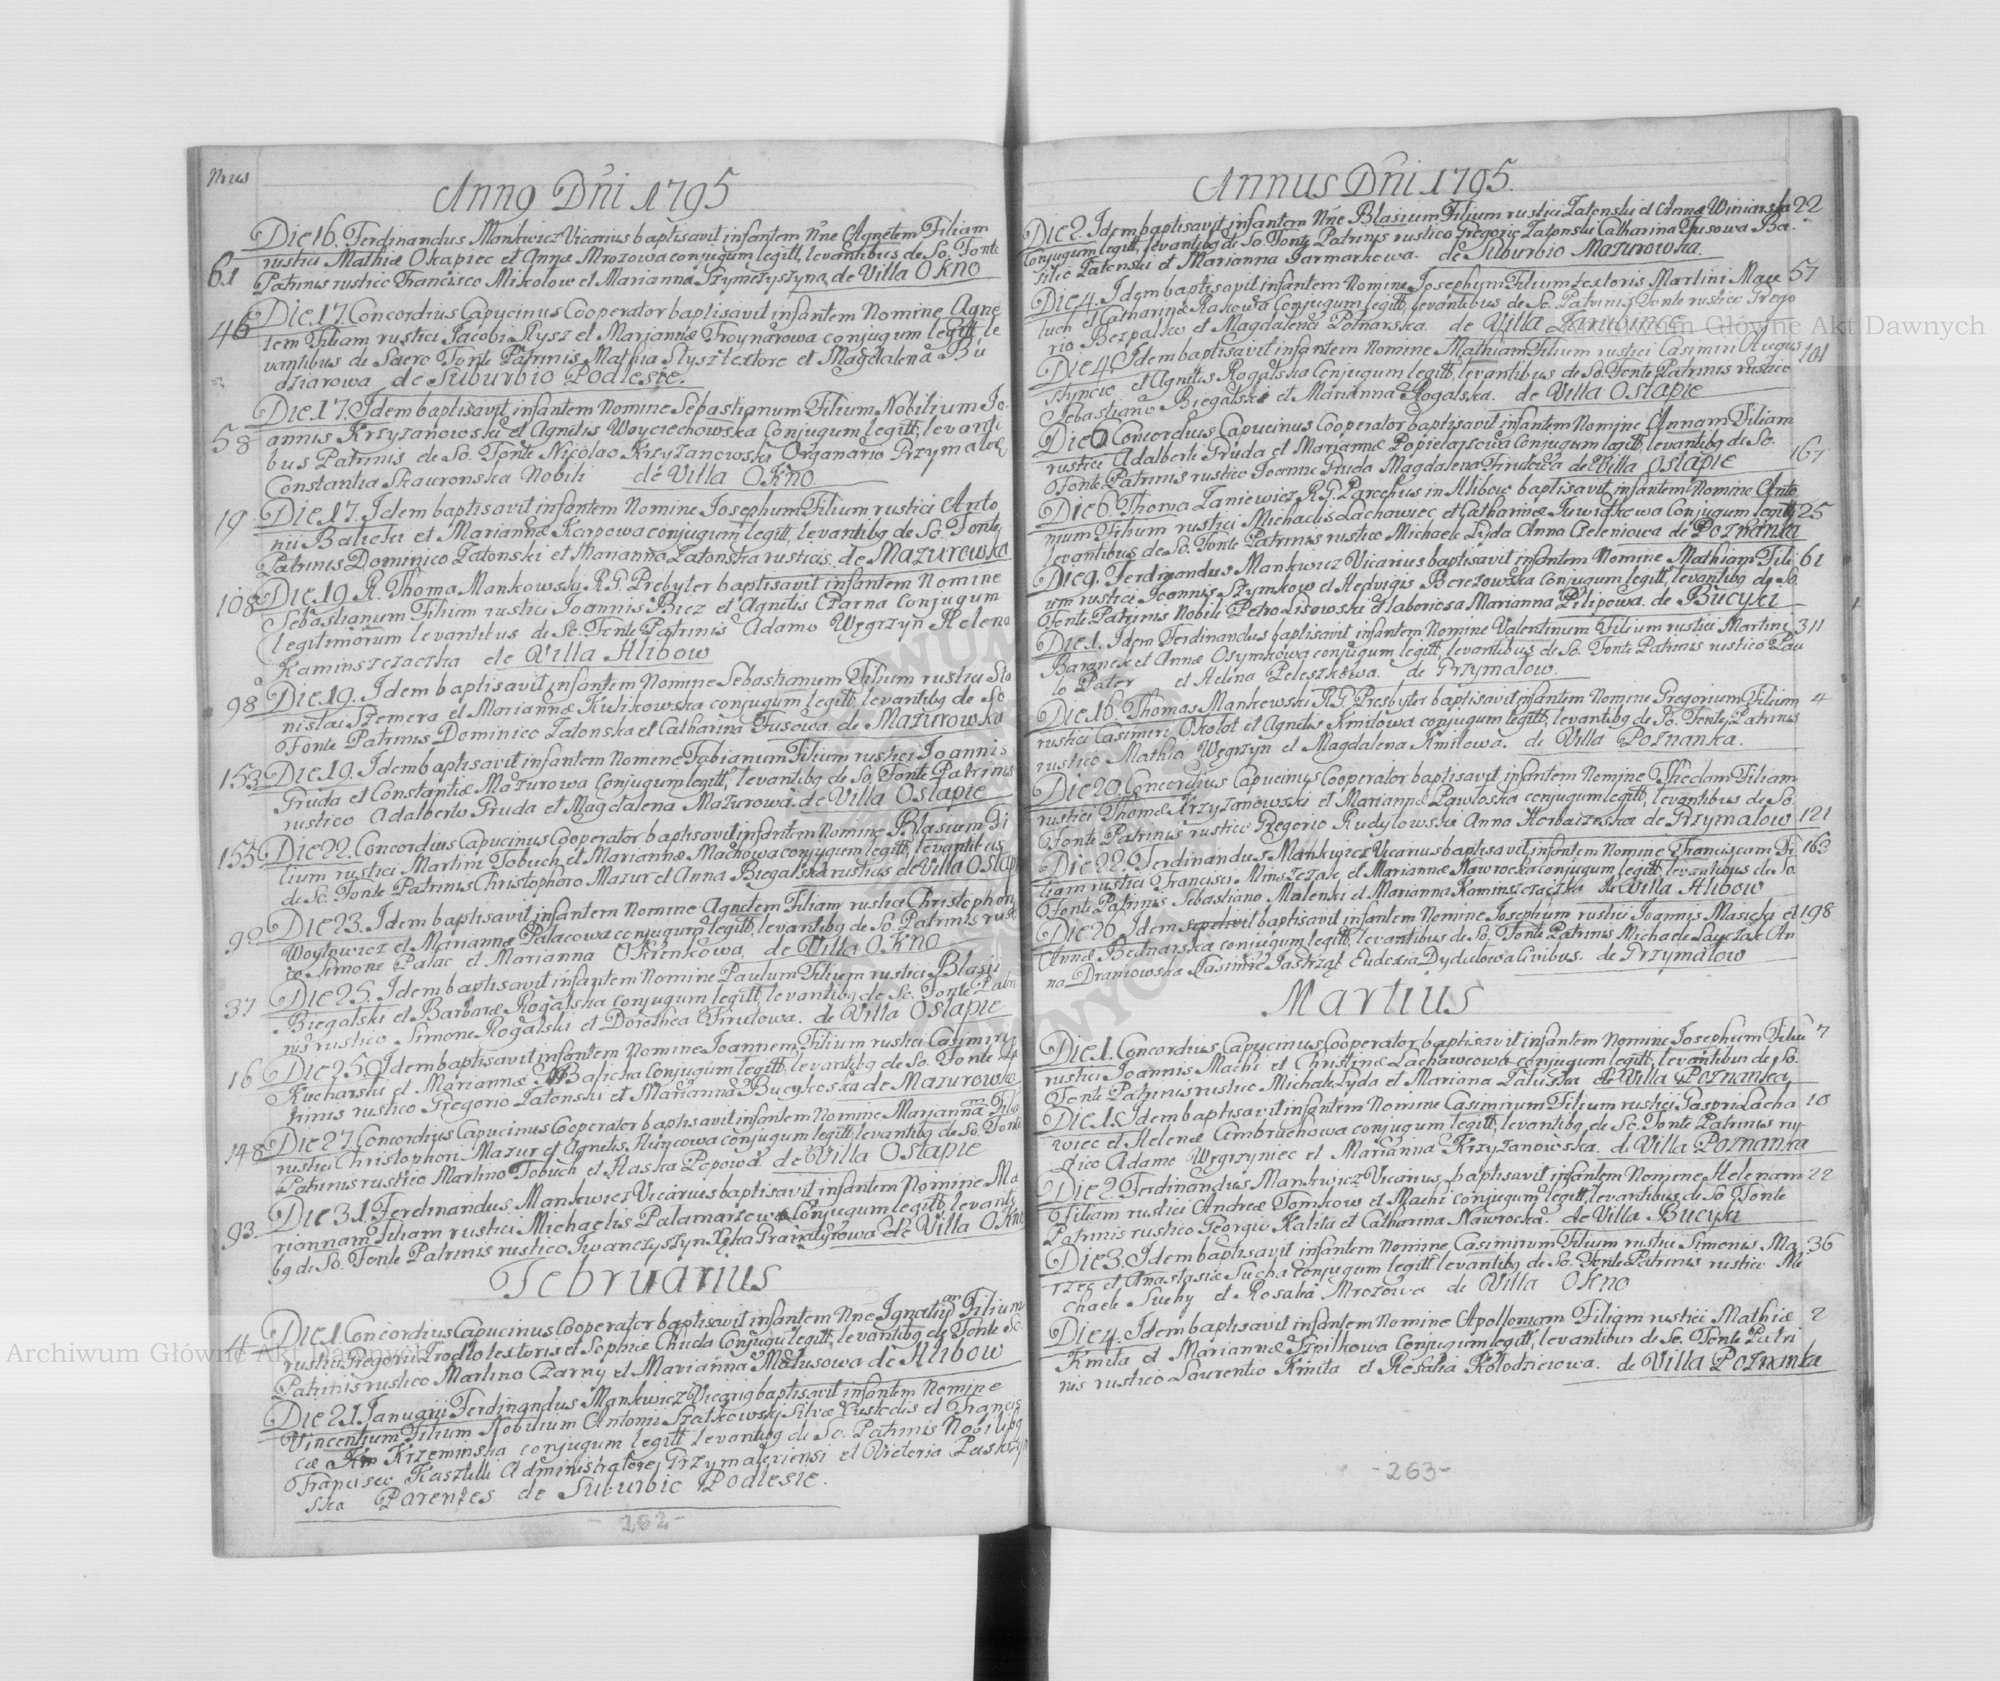 Nrus
Anno Dñi 1795
Die 16. Ferdinandus Mankwicz Vicarius baptisavit infantem Nñe Agnetem Filiam
61 rustici Mathiæ Okapiec et Annæ Mrozowa conjugum legitt, levantibus de So. Fonte
Patrinis rustico Francisco Mikolow et Marianna de Villa Okno
46 Die 17. Concordius Capucinus Cooperator baptisavit infantem Nomine Agne
tem Filiam rustici Jacobi Slysz et Mariannæ Troynarowa conjugum legitt le
vantibus de Sacro Fonte Patrinis Mathia Slysz textore et Magdalena Bu
dziarowa de Suburbio Podlesie.
Die 17. Idem baptisavit infantem Nomine Sebastianum Filium Nobilium Jo
58 annis Krzyzanowski et Agnetis Woyciechowska Conjugum legitt, levanti
bus Patrinis de So. Fonte Nicolao Krzyzanowski Organario Grzymalov
Constantia Skauronska Nobili de Villa Okno.
19 Die 17. Idem baptisavit infantem Nomine Josephum Filium rustici Anto
nii Balicki et Mariannæ Karpowa conjugum legitt, levantibq de So. Fonte
Patrinis Dominico Zatonski et Marianna Zatonska rusticis de Mazurowka
108 Die 19 R. Thoma Mankowski R.G. Prebyter baptisavit infantem Nomine
Sebastianum Filium rustici Joannis Biez et Agnetis Czarna Conjugum
legitimorum levantibus de So. Fonte Patrinis Adamo Węgrzyn Helena
Kaminszczaczka de Villa Hlibow
98 Die 19. Idem baptisavit infantem Nomine Sebastianum Filium rustici Sta
nislai Szemera et Mariannæ Kulikowska conjugum legitt, levantibq de So
Fonte Patrinis Dominico Zatonska et Catharina Fusowa de Mazurowka
153 Die 19. Idem baptisavit infantem Nomine Fabianum Filium rustici Joannis
Gruda et Constantiæ Mazurowa Conjugum legitt, levantibq de So. Fonte Patrinis
rustico Adalberto Gruda et Magdalena Mazurowa de Villa Ostapie
155 Die 22. Concordius Capucinus Cooperator baptisavit infantem Nomine Blasium Fi
lium rustici Martini Tobuch et Mariannæ Machowa conjugum legitt, levantibus
de So. Fonte Patrinis Christophoro Mazur et Anna Biegalska rusticis de Villa Ostap
90 Die 23. Idem baptisavit infantem Nomine Agnetem Filiam rustici Christophori
Woytowicz et Mariannæ Palacowa conjugum legitt, levantibq de So. Patrinis rust
Simone Palac et Marianna Okienkowa de Villa Okno
37 Die 25. Idem baptisavit infantem Nomine Paulum Filium rustici Blasii
Biegalski et Barbaræ Rogalska conjugum legitt, levantibq de So. Fonte Patri
nis rustico Simone Rogalski et Dorothea Firutowa. de Villa Ostapie
16 Die 25. Idem baptisavit infantem Nomine Joannem Filium rustici Casimiri
Kucharski et Mariannæ Balicka Conjugum legitt, levantibq de So. Fonte Pa
trinis rustico Gregorio Zatonski et Marianna Bucykoska de Mazurowka
148 Die 27. Concordius Capucinus Cooperator baptisavit infantem Nomine Mariannam Filia
rustici Christophori Mazur et Agnetis conjugum legitt, levantibq de So. Fonte
Patrinis rustico Martino Tobuch et Haska Popowa de Villa Ostapie
93 Die 31. Ferdinandus Mankwicz Vicarius baptisavit infantem Nomine Ma
riannam Filiam rustici Michaelis Palamarzewa Conjugum legitt, levanti
bq de So. Fonte Patrinis rustico de Villa Okno
Februarius
4 Die 1. Concordius Capucinus Cooperator baptisavit infantem Nñe Ignatium Filium
rustici Gregorii Zrodło textoris et Sophiæ Chuda Conjugu legitt, levantibq de Fonte So.
Patrinis rustico Martino Czarny et Marianna Matusowa de Hlibow
Die 21. Januarii Ferdinandus Mankwicz Vicariq baptisavit infantem Nomine
Vincentium Filium Nobilium Antonii Szatkowski Silvæ Custodis et Francis
cæ Krzeminska conjugum legitt levantibq de So. Patrinis Nobilibq
Francisco Kasztelli Administratore Grzymaloviensi et Victoria
ska Parentes de Suburbio Podlesie.
-262-
Annus Dñi 1795.
Die 2. Idem baptisavit infantem Nñe Blasium Filium rustici Zatonski et Annæ Winiarska 22
Conjugum legitt, levantibq de So. Fonte Patrinis rustico Gregorio Zatonski Catharina Fusowa Ba
silio Zatonski et Marianna Jarmarkowa. de Suburbio Mazurowka.
Die 4. Idem baptisavit infantem Nomine Josephum Filium textoris Martini Mace 57
luch et Catharinæ Rakowa Conjugum legitt, levantibus de So. Patrinis Fonte rustico Grego
rio Bezpalko et Magdalena Potnarska. de Villa Zarubince
Die 4. Idem baptisavit infantem Nomine Mathiam Filium rustici Casimiri Augus 101
styncio et Agnetis Rogalska Conjugum legitt, levantibus de So. Fonte Patrinis rustico
Sebastiano Biegalski et Marianna Rogalska. de Villa Ostapie
Die 6 Concordius Capucinus Cooperator baptisavit infantem Nomine Annam Filiam
rustici Adalberti Gruda et Mariannæ Popielarzowa Conjugum legitt, levantibq de So.
Fonte Patrinis rustico Joanne Gruda Magdalena Firutowa de Villa Ostapie 167
Die 6. Thoma Janiewicz R.G. Parochus in Hlibow baptisavit infantem Nomine Anto
nium Filium rustici Michaelis Lachawiec et Catharinæ Juwiakowa Conjugum legitt 25
levantibus de So. Fonte Patrinis rustico Michaele Lyda Anna Heleniowa de Poznanka
Die 9. Ferdinandus Mankwicz Vicarius baptisavit infantem Nomine Mathiam Fili 61
um rustici Joannis Szymkow et Hedvigis Berezowska Conjugum legitt, levantibq de So.
Fonte Patrinis Nobili Petro Lisowski et laboriosa Marianna Pilipowa. de Bucyki
Die 1. Idem Ferdinandus baptisavit infantem Nomine Valentinum Filium rustici Martini 311
Baranek et Annæ Osymkowa conjugum legitt, levantibus de So. Fonte Patrinis rustico Pau
lo Pater et Helena Peleszkowa. de Grzymalow.
Die 16. Thomas Mankowski R.G. Presbyter baptisavit infantem Nomine Gregorium Filium 4
rustici Casimiri Okolot et Agnetis Kmitowa conjugum legitt, levantibq de So. Fonte Patrinis
rustico Mathio Węgrzyn et Magdalena Kmitowa. de Villa Poznanka.
Die 20. Concordius Capucinus Cooperator baptisavit infantem Nomine Theclam Filiam
rustici Thomæ Krzyzanowski et Mariannæ Pawłoska conjugum legitt, levantibus de So.
Fonte Patrinis rustico Gregorio Rudylowska Anna Herbaczeska de Grzymalow 121
Die 22. Ferdinandus Mankwicz Vicarius baptisavit infantem Nomine Franciscam Fi 163
liam rustici Francisci Minszczak et Mariannæ Nawrocka conjugum legitt levantibus de So.
Fonte Patrinis Sebastiano Malenki et Marianna Kaminszczaczka de Villa Hlibow
Die 26 Idem sepelivit baptisavit infantem Nomine Josephum rustici Joannis Masicki et 198
Annæ Bednarska conjugum legitt, levantibus de So. Fonte Patrinis Michaele An
na Dramowska Casimiro Jastrząb Eudoxia Dydulowa Civibus. de Grzymalow
Martius
Die 1. Concordius Capucinus Cooperator baptisavit infantem Nomine Josephum Filiu 7
rustici Joannis Machi et Christinæ Lachawcowa conjugum legitt, levantibus de So.
Fonte Patrinis rustico Michaele Lyda et Mariana Zaluska de Villa Poznanka
Die 1. Idem baptisavit infantem Nomine Casimirum Filium rustici Gaspri Lacha 10
wiec et Helenæ Ambruchowa conjugum legitt, levantibq de So. Fonte Patrinis rus
tico Adamo Węgrzyniec et Marianna Krzyzanowska. de Villa Poznanka
Die 2. Ferdinandus Mankwicz Vicarius baptisavit infantem Nomine Helenam 22
Filiam rustici Andreæ Tomkow et Machi conjugum legitt, levantibus de So Fonte
Patrinis rustico Georgio Kalita et Catharina Nawrocka. de Villa Bucyki
Die 3. Idem baptisavit infantem Nomine Casimirum Filium rustici Simonis Ma 36
rzec et Anastasiæ Sucha conjugum legitt, levantibq de So. Fonte Patrinis rustico Mi
chaele Suchy et Rosalia Mrozowa de Villa Okno
Die 4. Idem baptisavit infantem Nomine Apolloniam Filiam rustici Mathiæ 2
Kmita et Mariannæ Szpilkowa Conjugum legitt, levantibus de So. Fonte Patri
nis rustico Laurentio Kmita et Rosalia Kołodzieiowa. de Villa Poznanka
-263-
Archiwum Główne Akt Dawnych
Archiwum Główne Akt Dawnych